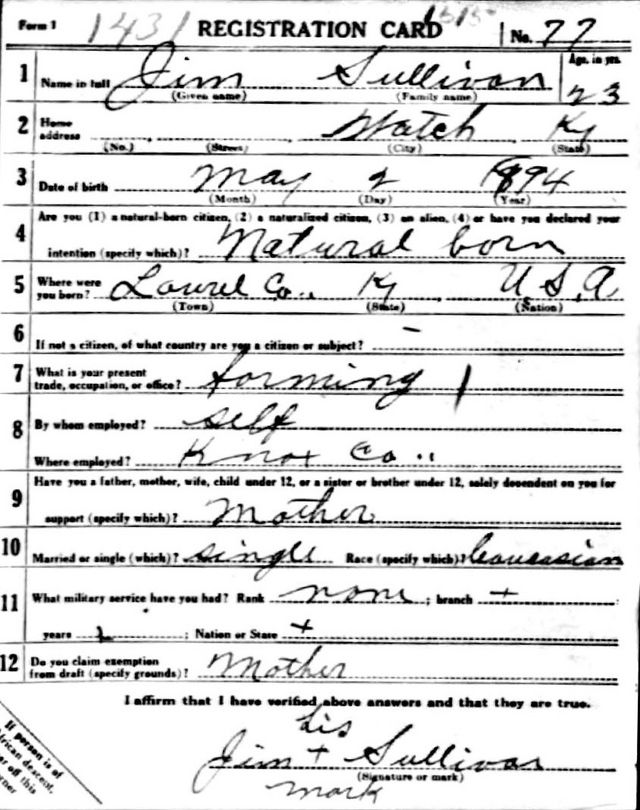 Form 1 1431 REGISTRATION CARD No. 77
1 Name in full Jim Sullivan Age, in yrs. 23
(Given name) (Family name)
2 Home address Watch Ky
(No.) (Street) (City) (State)
3 Date of birth May 2 1894
(Month) (Day) (Year)
4 Are you (1) a natural-born citizen, (2) a naturalized citizen, (3) an alien, (4) or have you declared your
intention (specify which)? Natural born
5 Where were you born? Laurel Co., Ky U.S.A
(Town) (State) (Nation)
6 If not a citizen, of what country are you a citizen or subject? -
7 What is your present trade, occupation, or office? forming
8 By whom employed? self
Where employed? Knox Co..
9 Have you a father, mother, wife, child under 12, or a sister or brother under 12, solely dependent on you for
support (specify which)? Mother
10 Married or single (which)? single Race (specify which)? Caucasian
11 What military service have you had? Rank none ; branch +
years ; Nation or State +
12 Do you claim exemption from draft (specify grounds)? Mother
I affirm that I have verified above answers and that they are true.
his
Jim + Sullivan
(Signature or mark)
mark
If person is of
African descent,
off this
corner